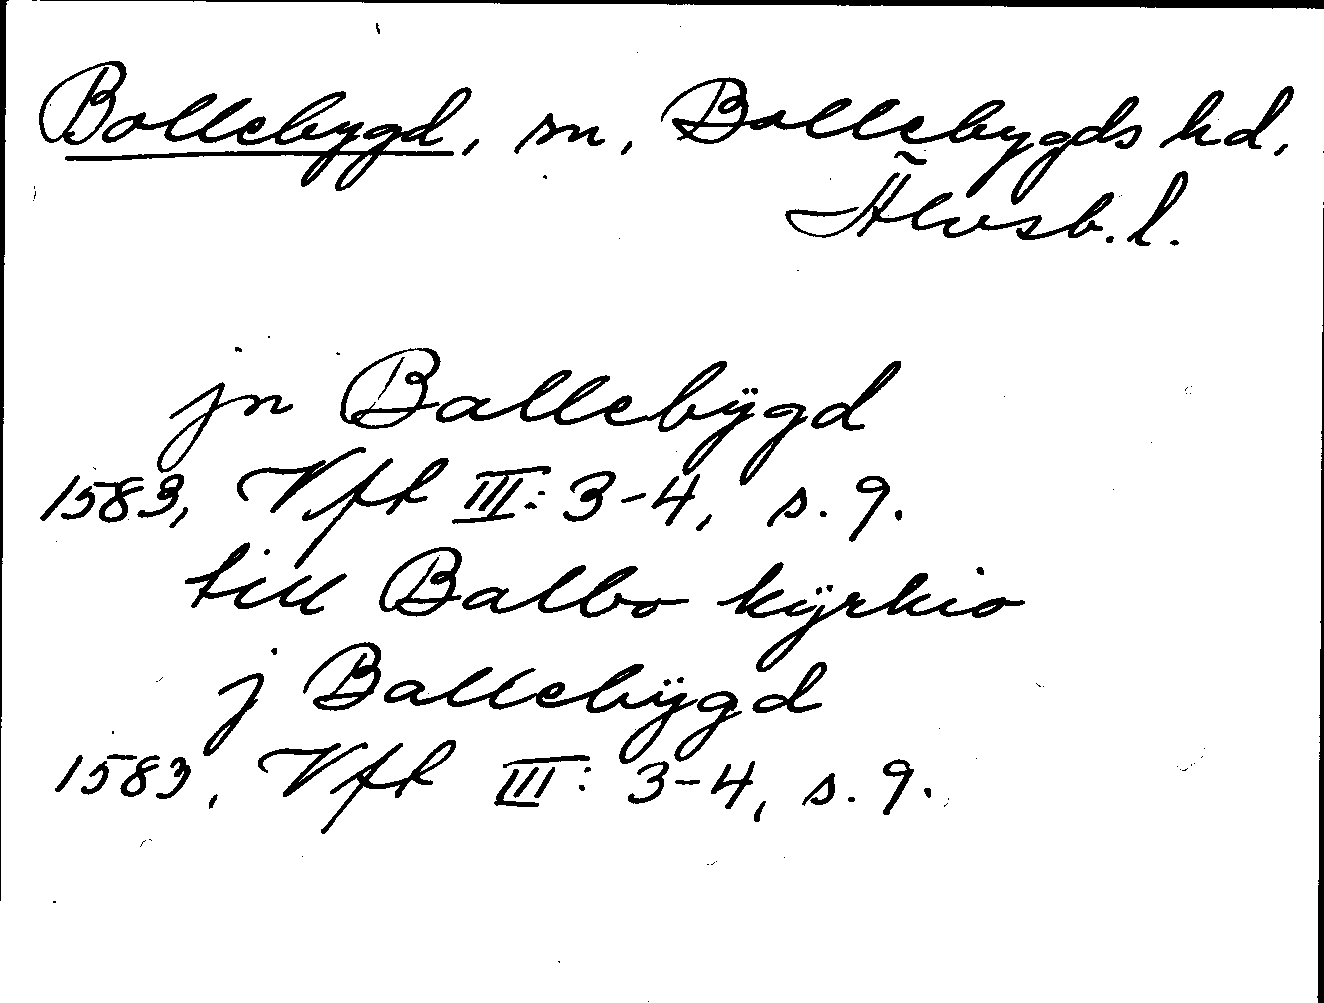 Bollebygd, sn, Bollebygds hd,
Älvsb. l.
jn Ballebÿgd
1583, Vfl III: 3-4, s. 9.
till Balbo kÿrkio
j Ballebÿgd
1583, Vfl III: 3-4, s. 9.